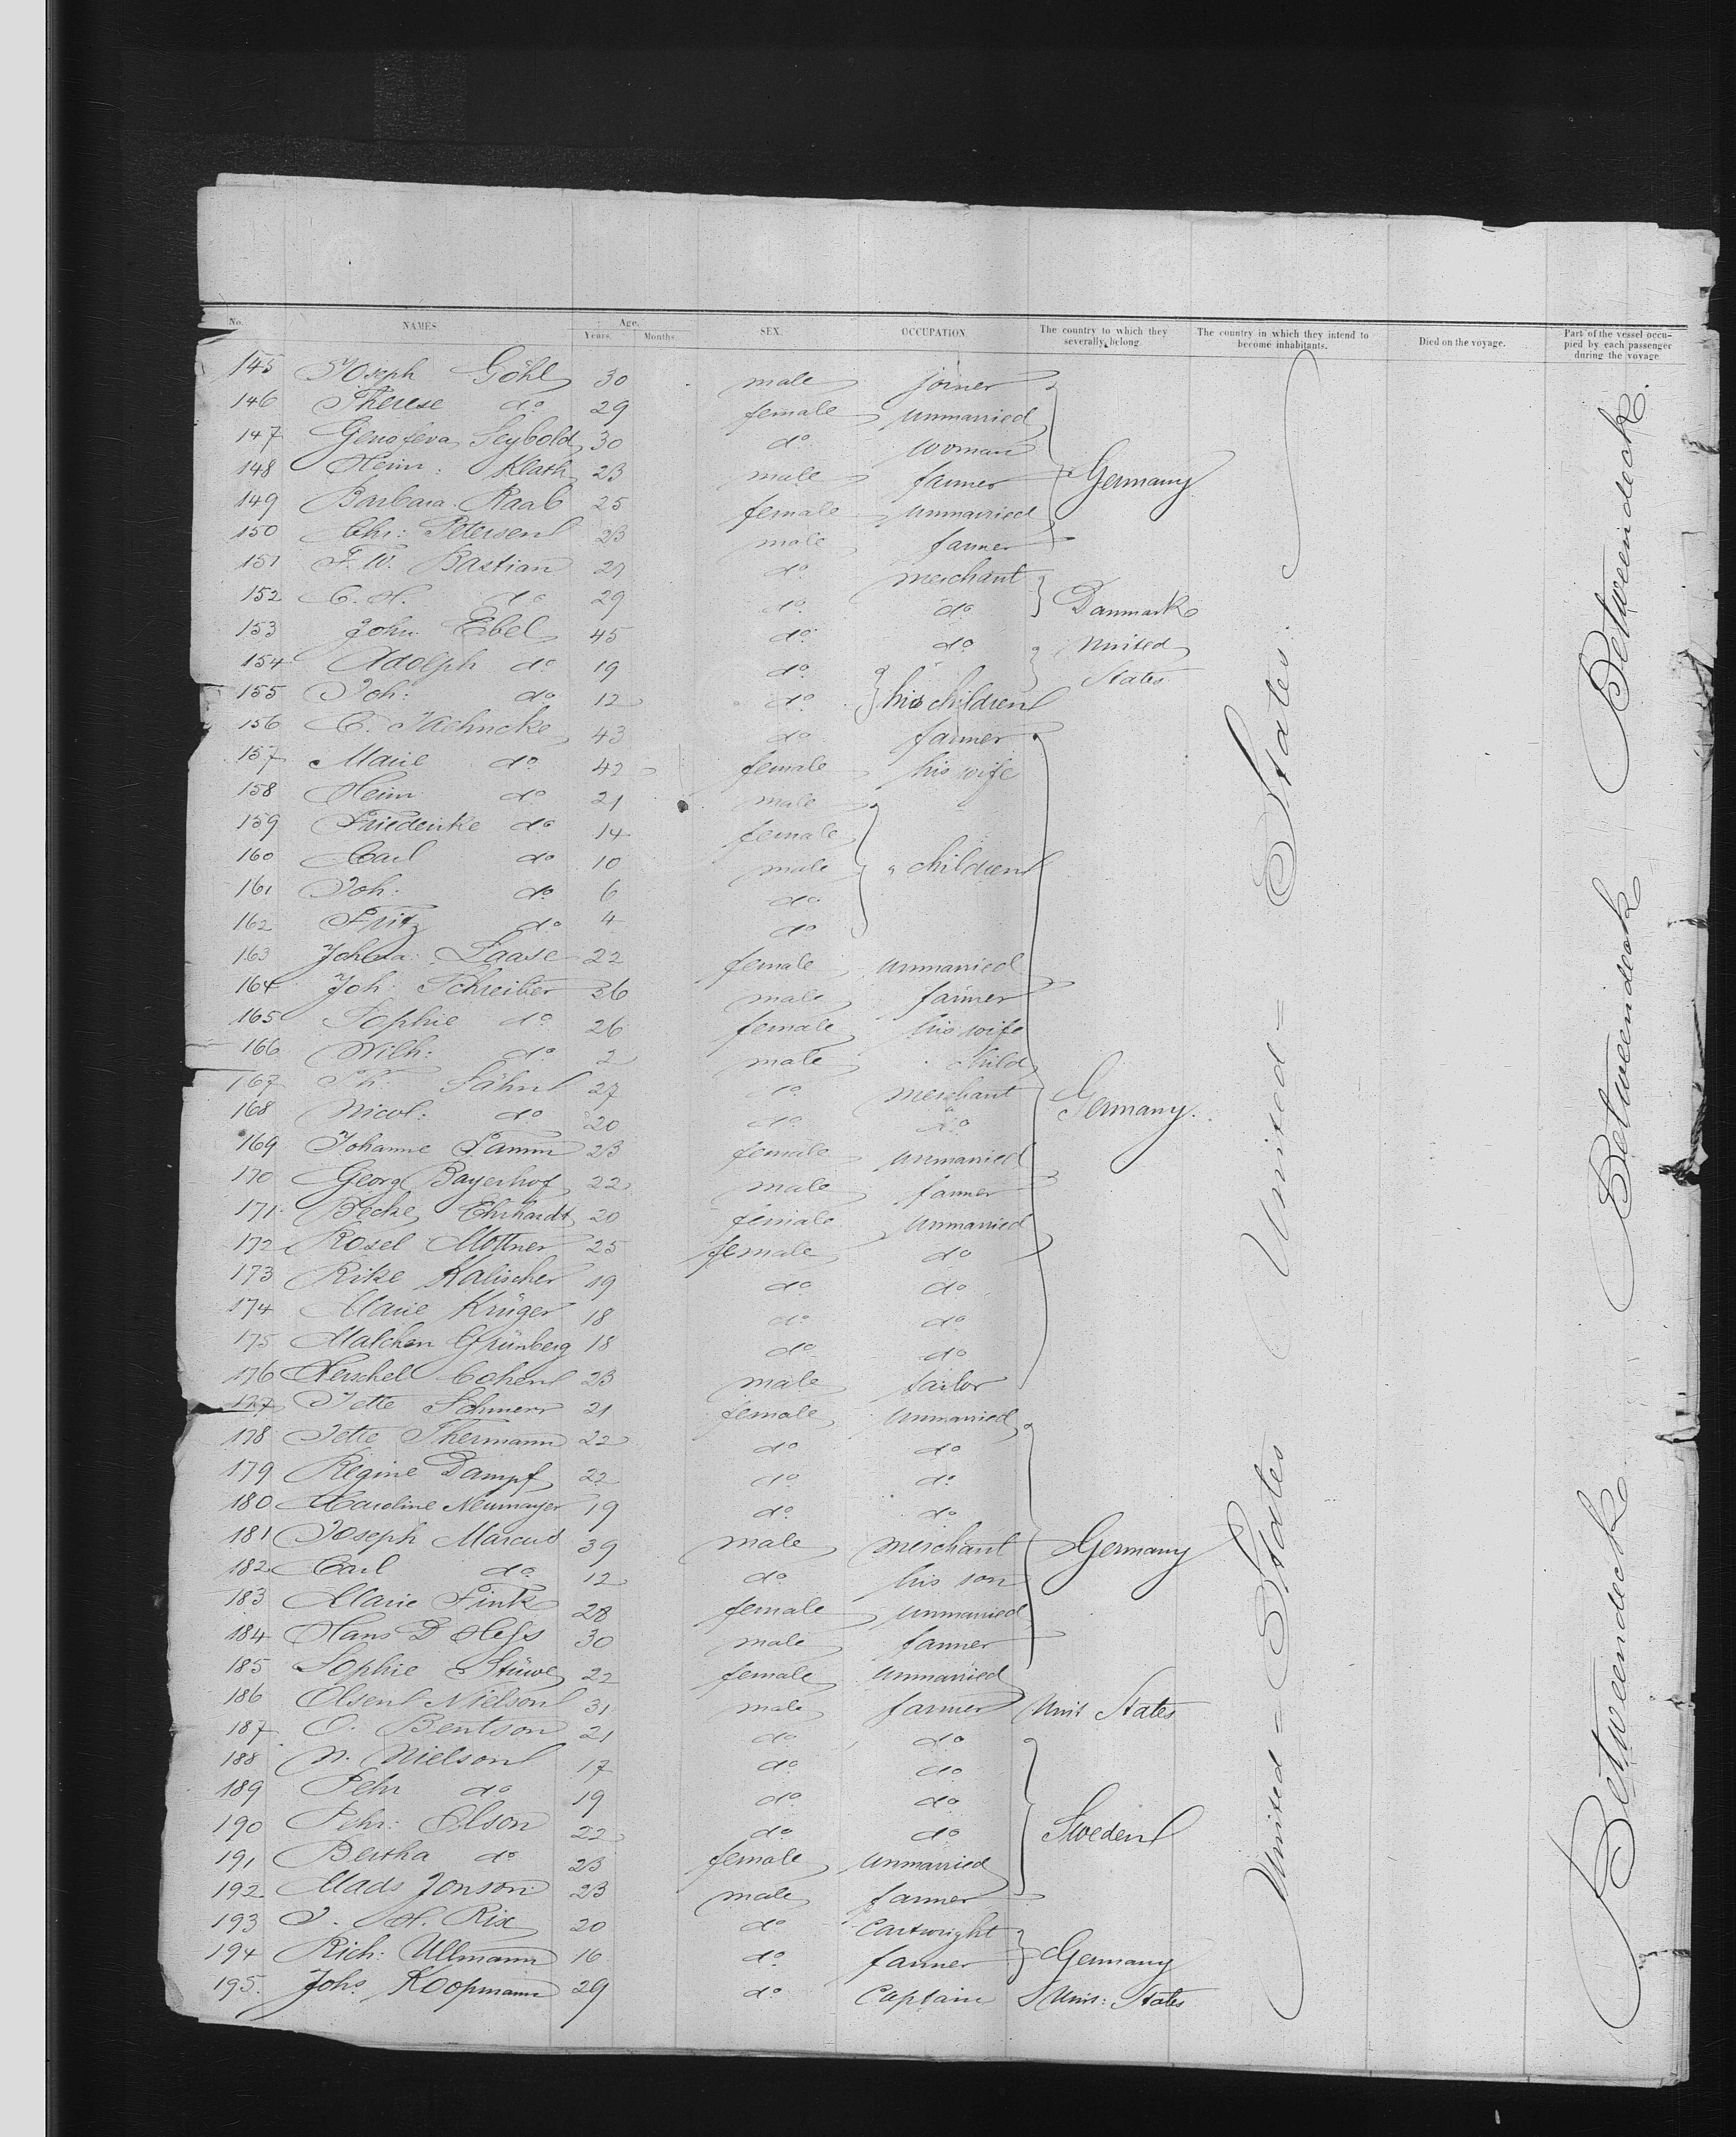 No. NAMES Age. Years. Months. SEX. OCCUPATION. The country to which they severally belong. The country in which they intend to become inhabitants. Died on the voyage. Part of the vessel occupied by each passenger during the voyage
145 Joseph Göhl 30 male joiner
146 Therese do 29 female unmarried
147 Genofeva Seybold 30 do woman
148 Heinr: Klath 23 male farmer Germany
149 Barbara Raab 25 female unmarried
150 Chr: Petersen 23 male farmer
151 F. W. Bastian 27 do merchant
152 C. H. do 29 do do Danmark
153 John Ebel 45 do do United
154 Adolph do 19 do States
155 Joh: do 12 do his children
156 C. Jaehncke 43 do farmer
157 Marie do 42 female his wife
158 Heinr do 21 male
159 Friederike do 14 female
160 Carl do 10 male " children
161 Joh: do 6 do
162 Fritz do 4 do
163 Laase 22 female unmarried
164 Joh: Schreiber 36 male farmer
165 Sophie do 26 female his wife
166 Wilh: do 2 male child
167 Th. Jähn 27 do merchant Germany.
168 Nicol: do 20 do do
169 Johanne Lamm 23 female unmarried
170 Georg Bayerhof 22 male farmer
171 Becke Ehrhardt 20 female unmarried
172 Rosel Mottner 25 female do
173 Rike Kalischer 19 do do
174 Marie Krüger 18 do do
175 Malchen Grünberg 18 do do
176 Herschel Cohen 23 male tailor
177 Jette 21 female unmarried
178 Jette Thermann 22 do do
179 Regine Dampf 22 do do
180 Karoline Neumayer 19 do do
181 Joseph Marcus 39 male merchant Germany
182 Carl do 12 do his son
183 Marie Fink 28 female unmarried
184 Hans D Hess 30 male farmer
185 Sophie Stüwe 22 female unmarried
186 Olsen Nielson 31 male farmer Unit States
187 O. Bentson 21 do do
188 N. Nielson 17 do do
189 Pehr do 19 do do
190 Pehr: Olson 22 do do Sweden
191 Bertha do 23 female unmarried
192 Mads Jonson 23 male farmer
193 J. H. Rix 20 do Cartwright
194 Rich: Ullmann 16 do farmer Germany
195. Johs Koopmann 29 do Captain Unit: States
United = States United = States.
Betweendeck Betweendeck Betweendeck